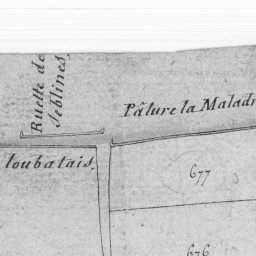 Ruette de
Seblines,
Pâture la Maladr
loubatais,
677
676